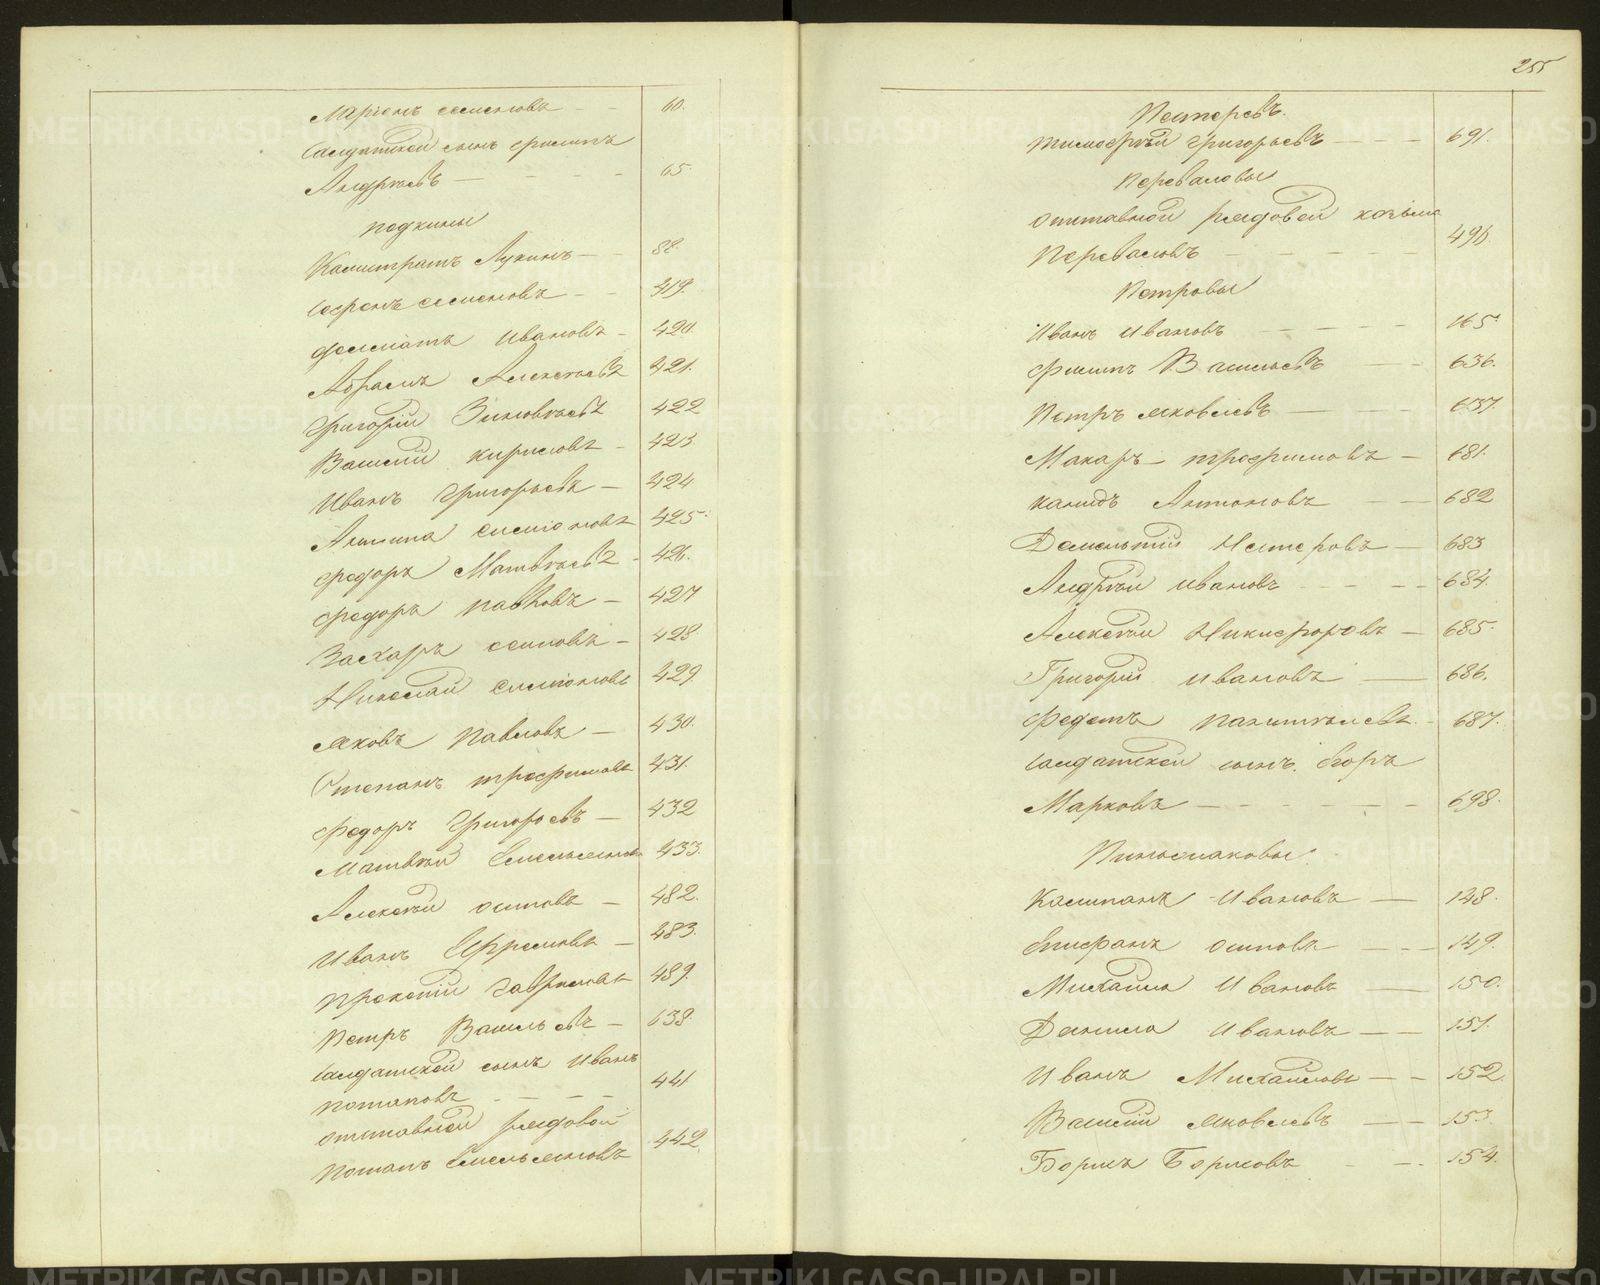 Ларионъ Семеновъ - - 60.
Салдатской сынъ Филипъ
Андреевъ - - - - 65.
Подкины
Калистратъ Лукинъ - - 88.
Софронъ Семеновъ - - 419.
Филатъ Ивановъ - 420.
Абрамъ Алексеевъ 421.
Григорій Зиновьевъ 422
Василій Кириловъ - 423.
Иванъ Григорьевъ - 424
Симионовъ 425.
Федоръ Матвеевъ - 426.
Федоръ Павловъ - 427
Захаръ Осиповъ - 428.
Николай Симионовъ 429.
Яковъ Павловъ - 430.
Степанъ Трофимовъ 431.
Федоръ Григорьевъ - 432
Матвей Емельяновъ 433.
Алексей Осиповъ - 482.
Иванъ Ефремовъ - 483.
Прокопій Гавриловъ 489.
Петръ Васильевъ - 638.
Салдатской сынъ Иванъ
Потаповъ - - - 441
Отставной рядовой
Потапъ Емельяновъ 442.
255
Нестеровъ.
Тимофей Григорьевъ - - - 691.
Переваловы
Отставной рядовой Козьма
Переваловъ - - - - - 490.
Петровы
Иванъ Ивановъ - - - - 165.
Филипъ Васильевъ - - 636.
Петръ Яковлевъ - - - 637.
Макаръ Трофимовъ - 681.
Антоновъ - - 682
Дементій Нестеровъ - 683
Андрей Ивановъ - - - - 684.
Алексей Никифоровъ - 685.
Григорій Ивановъ - 686.
Федотъ - 687.
Салдатской сынъ Егоръ
Марковъ - - - - - - 698.
Пиньжаковы
Ивановъ - 148.
Епифанъ Осиповъ - - - 149.
Михайло Ивановъ - - 150.
Данило Ивановъ - - 151.
Иванъ Михайловъ - - 152.
Василій Яковлевъ - - - 153.
Борисъ Борисовъ - - - 154.
METRIKI.GASO-URAL.RU